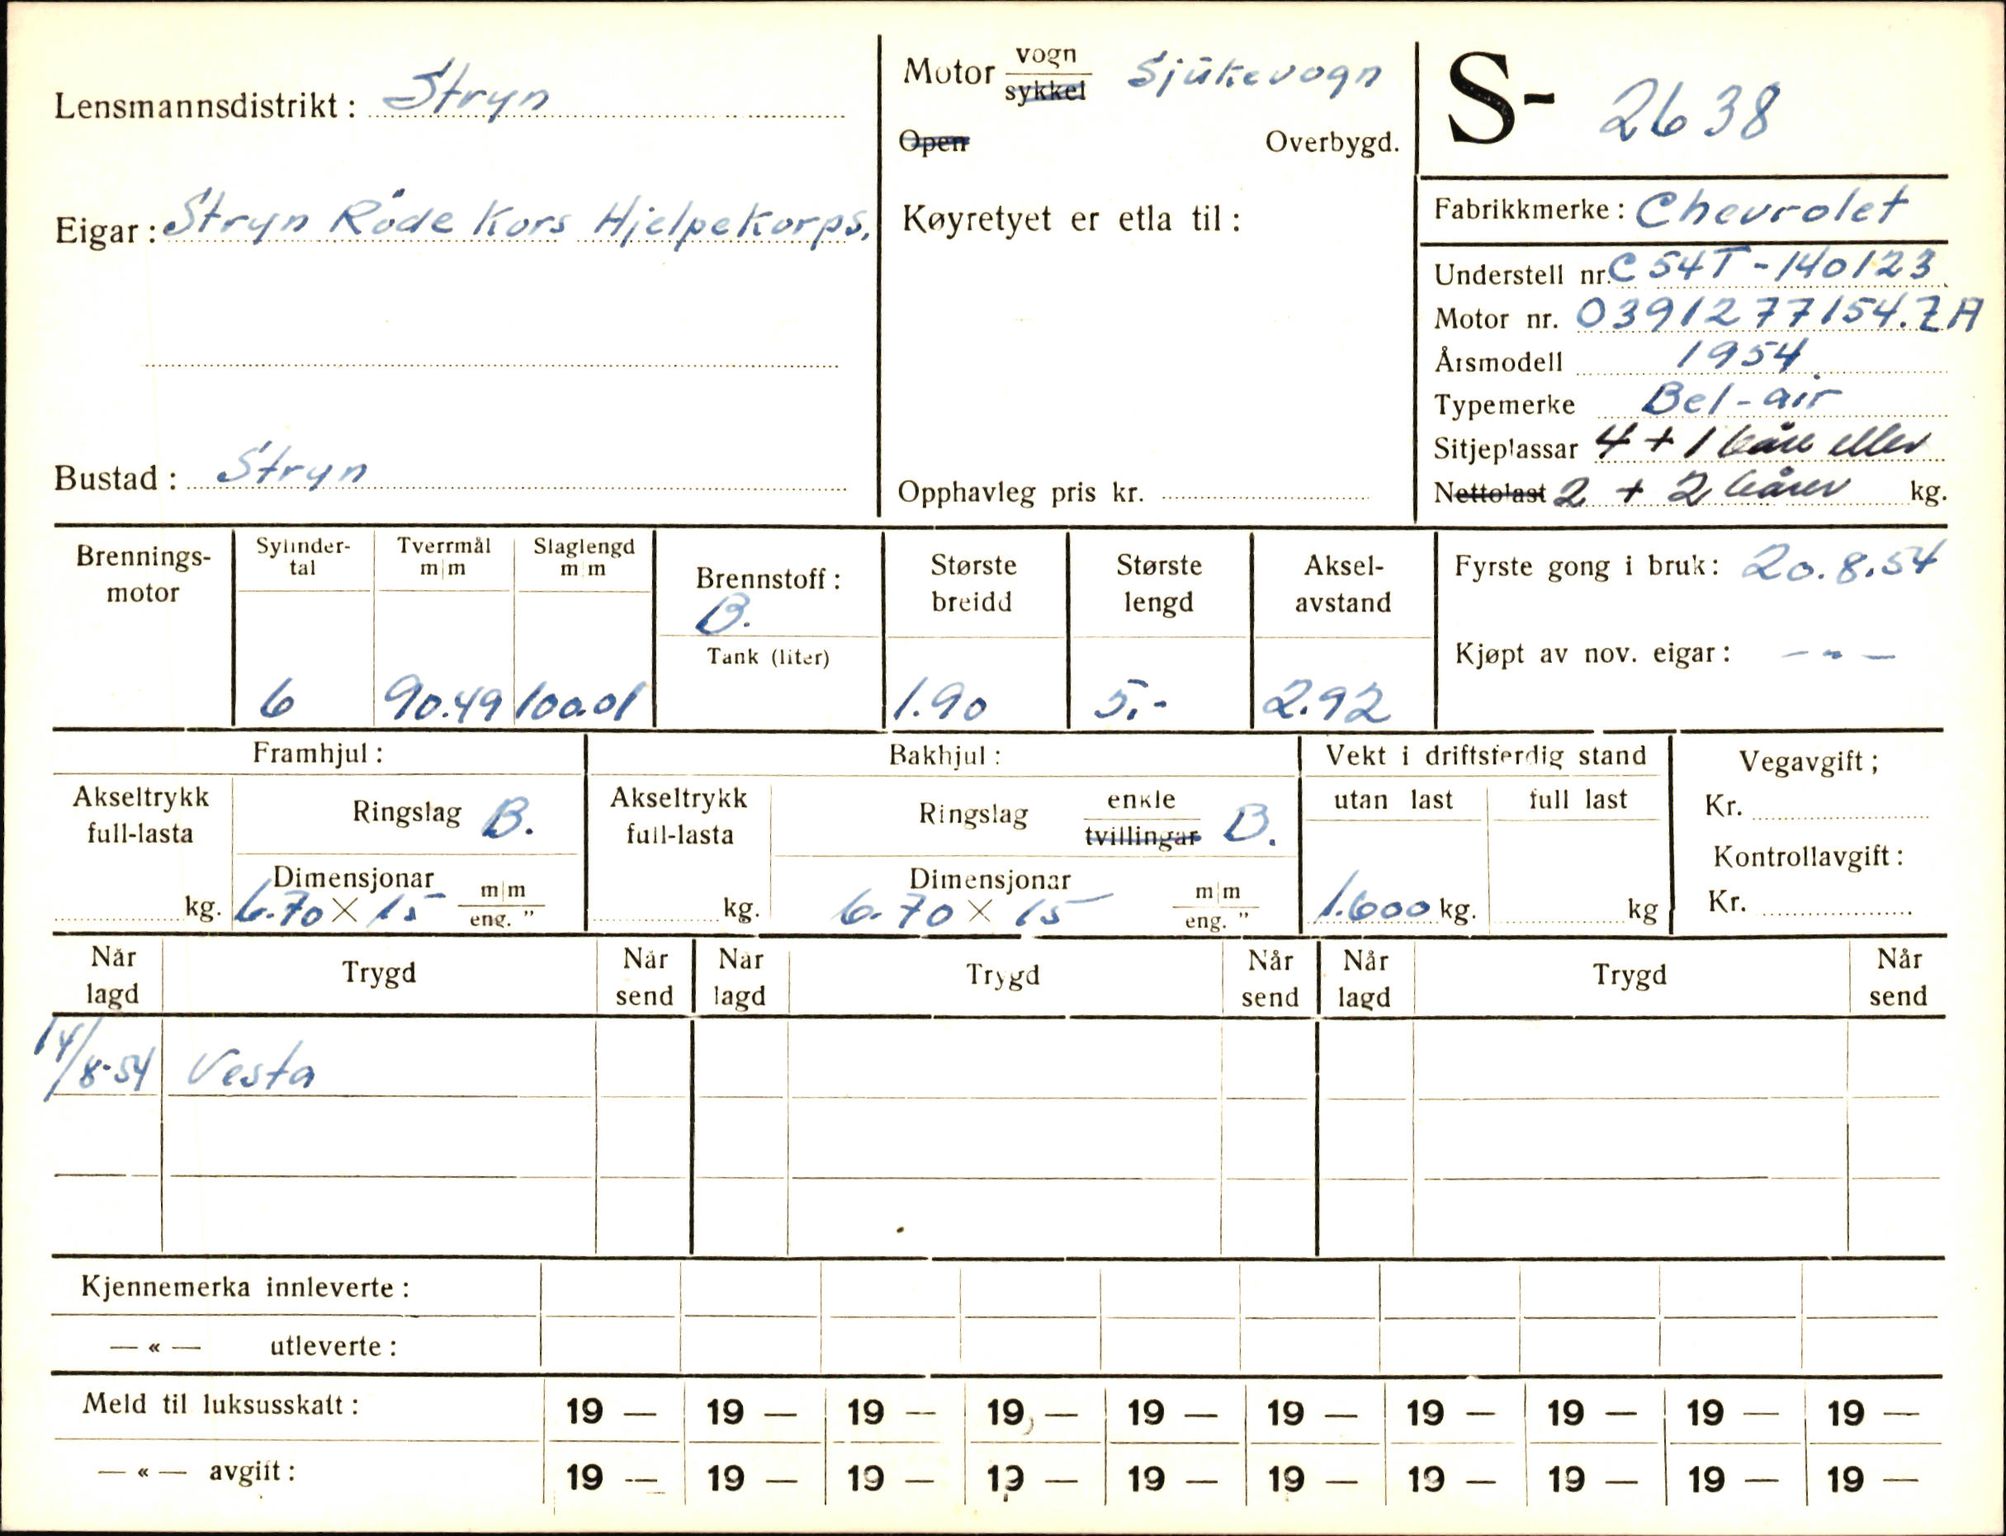 Lensmannsdistrikt: Stryn
Eigar: Stryn Röde Kors Hjelpekorps.
Bustad: Stryn
Motor vogn Sjükevogn
sykkel
Open Overbygd.
Køyretyet er etla til:
Opphavleg pris kr.
S- 2638
Fabrikkmerke: Chevrolet
Understell nr. C 54T-140123
Motor nr. 0391277154.ZA
Årsmodell 1954
Typemerke Bel-air
Sitjeplassar 4 + 1 båre eller
Nettolast 2 + 2 bårer kg.
Brennings-
motor
Sylinder-
tal
6
Tverrmål
m|m
90.49
Slaglengd
m|m
100.01
Brennstoff:
B.
Tank (liter)
Største
breidd
1.90
Største
lengd
5.-
Aksel-
avstand
2.92
Fyrste gong i bruk: 20.8.54
Kjøpt av nov. eigar: - " -
Framhjul:
Akseltrykk
full-lasta
kg.
Ringslag B.
Dimensjonar m|m
6.70 x 15 eng. "
Bakhjul:
Akseltrykk
full-lasta
kg.
Ringslag enkle B.
tvillingar
Dimensjonar m|m
6.70 x 15 eng. "
Vekt i driftsferdig stand
utan last full last
1.600 kg. kg
Vegavgift;
Kr.
Kontrollavgift:
Kr.
Når lagd Trygd Når send Når lagd Trygd Når send Når lagd Trygd Når send
14/8-54 Vesta
Kjennemerka innleverte:
— « — utleverte:
Meld til luksusskatt: 19 — 19 — 19 — 19 — 19 — 19 — 19 — 19 — 19 — 19 —
— « — avgift: 19 — 19 — 19 — 19 — 19 — 19 — 19 — 19 — 19 — 19 —